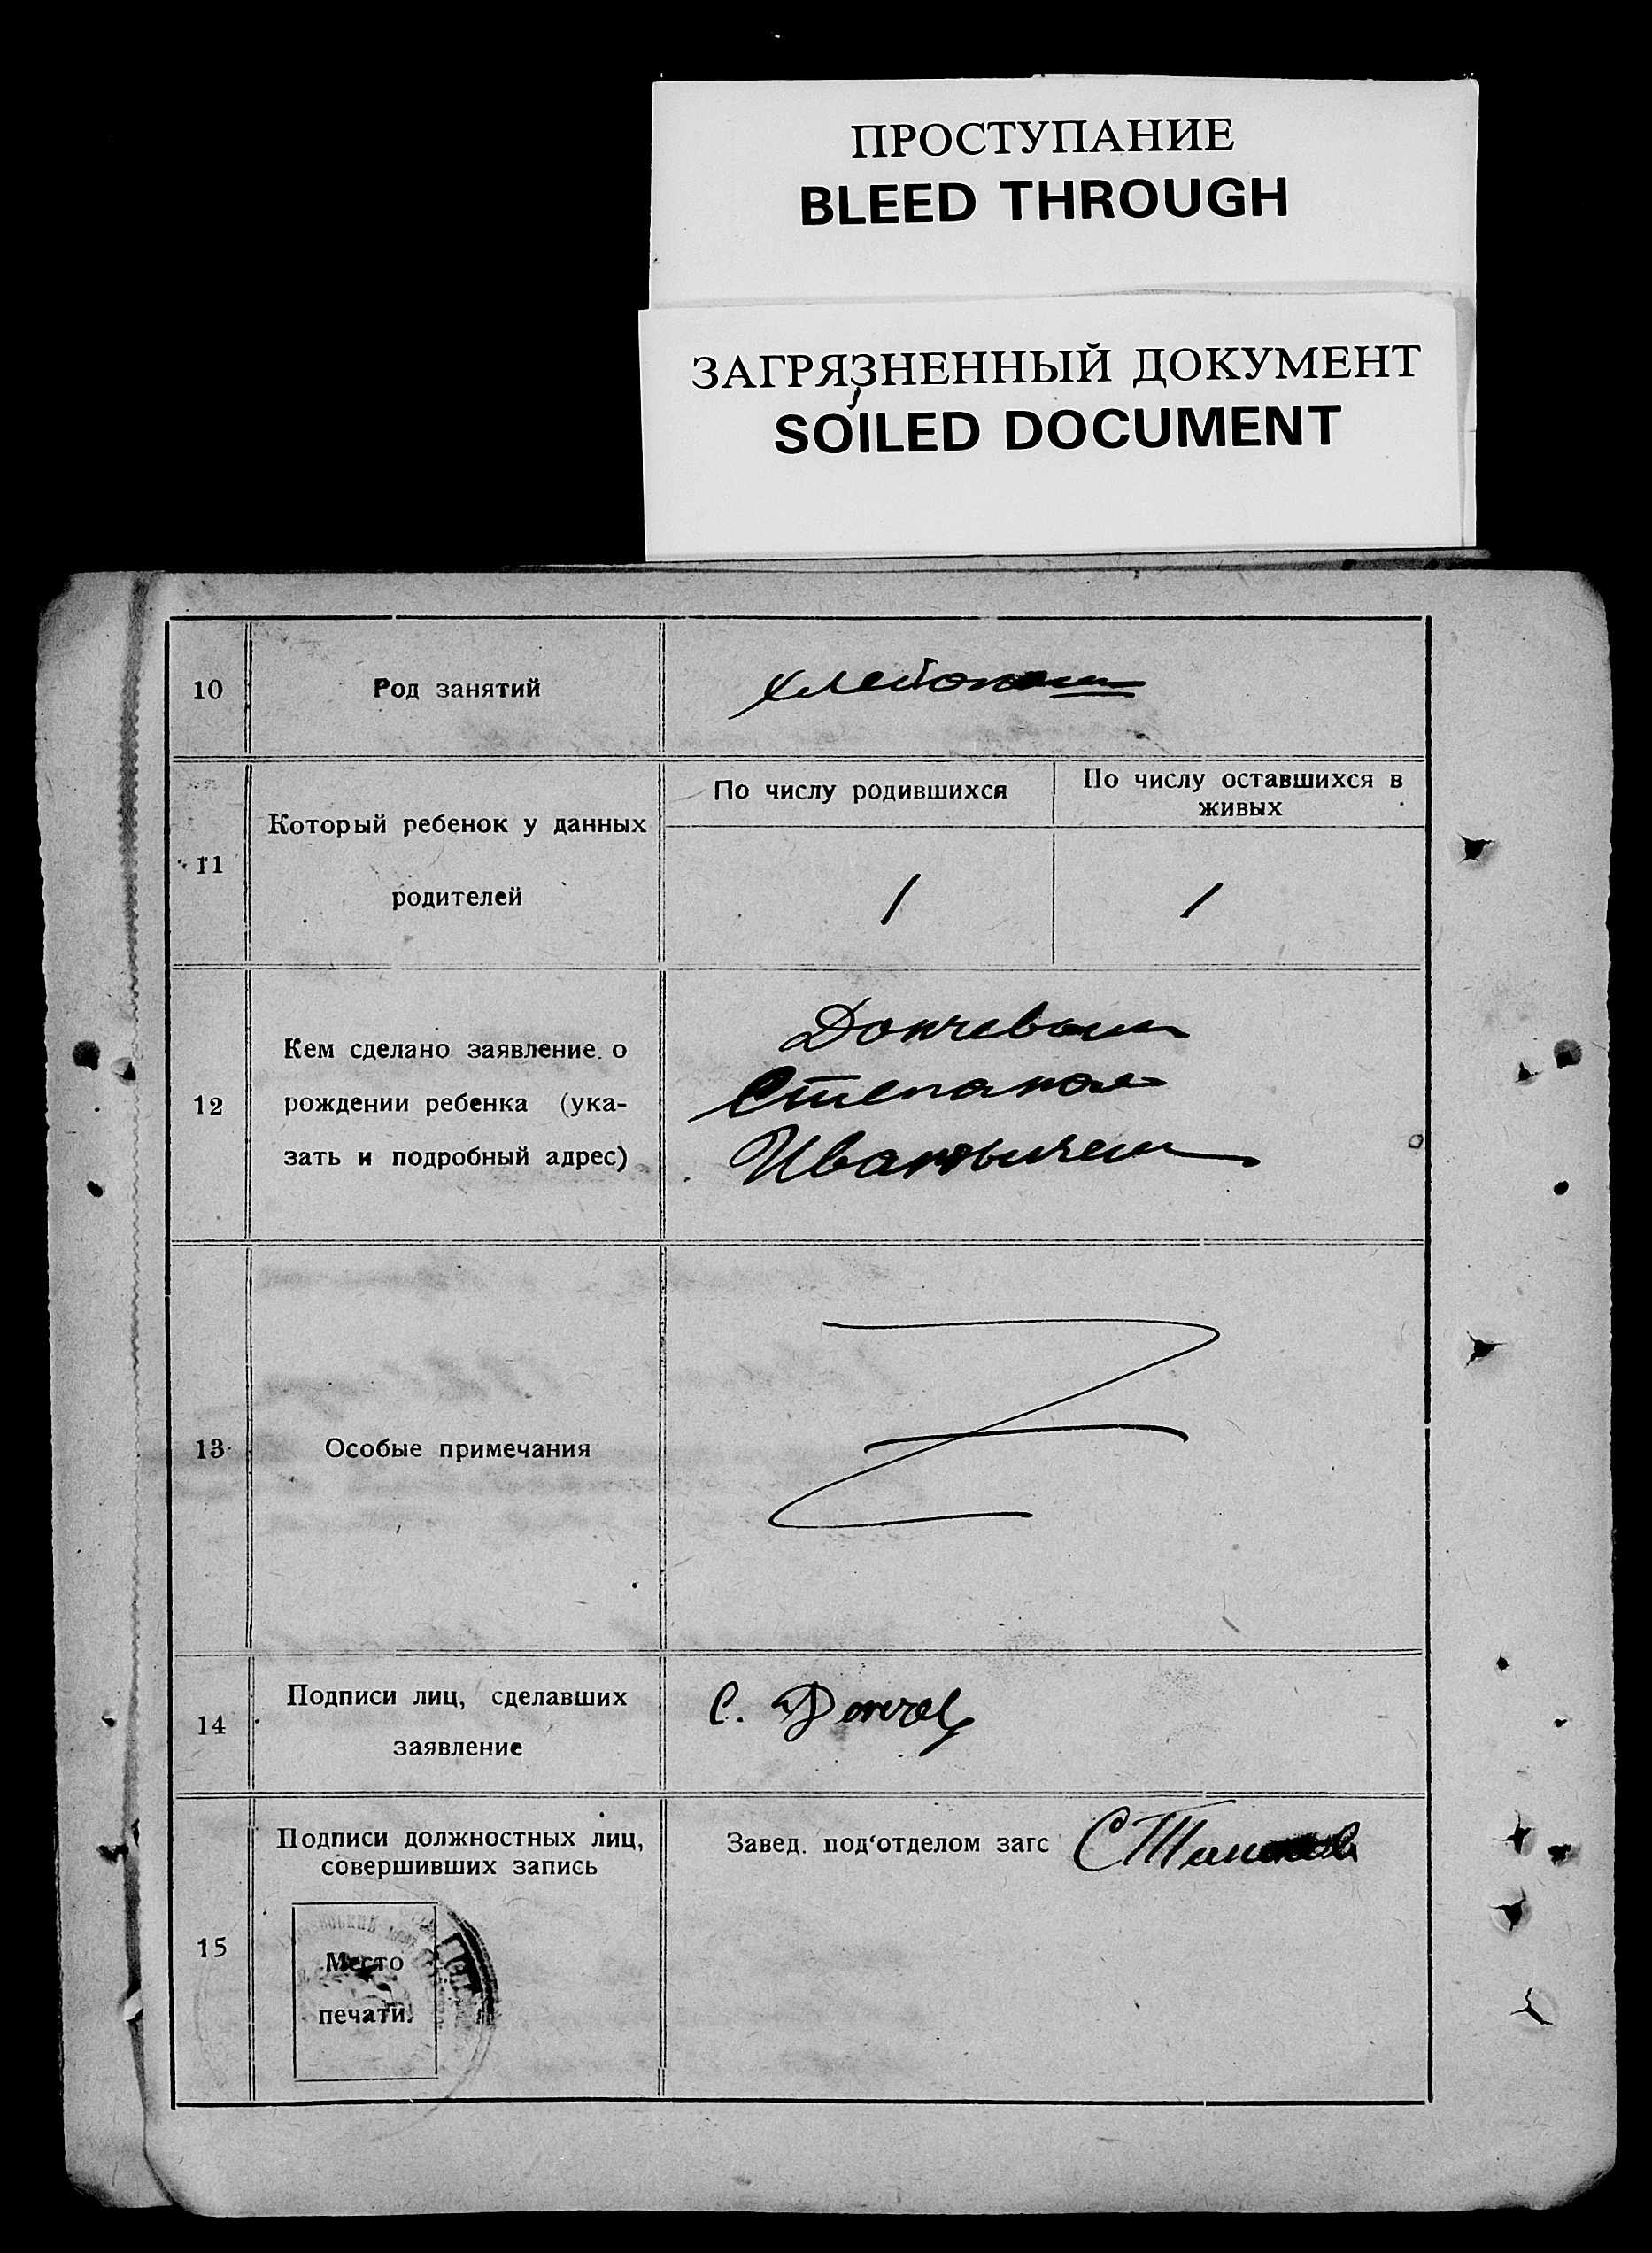 ПРОСТУПАНИЕ
BLEED THROUGH
ЗАГРЯЗНЕННЫЙ ДОКУМЕНТ
SOILED DOCUMENT
10
Род занятий
11
Который ребенок у данных
родителей
По числу родившихся
По числу оставшихся в
живых
1
1
12
Кем сделано заявление о
рождении ребенка (ука-
зать и подробный адрес)
Дончевым
Степаном
Ивановичем
13
Особые примечания
14
Подписи лиц, сделавших
заявление
С. Дончев
15
Подписи должностных лиц,
совершивших запись
Место
печати.
Завед. под‘отделом загс